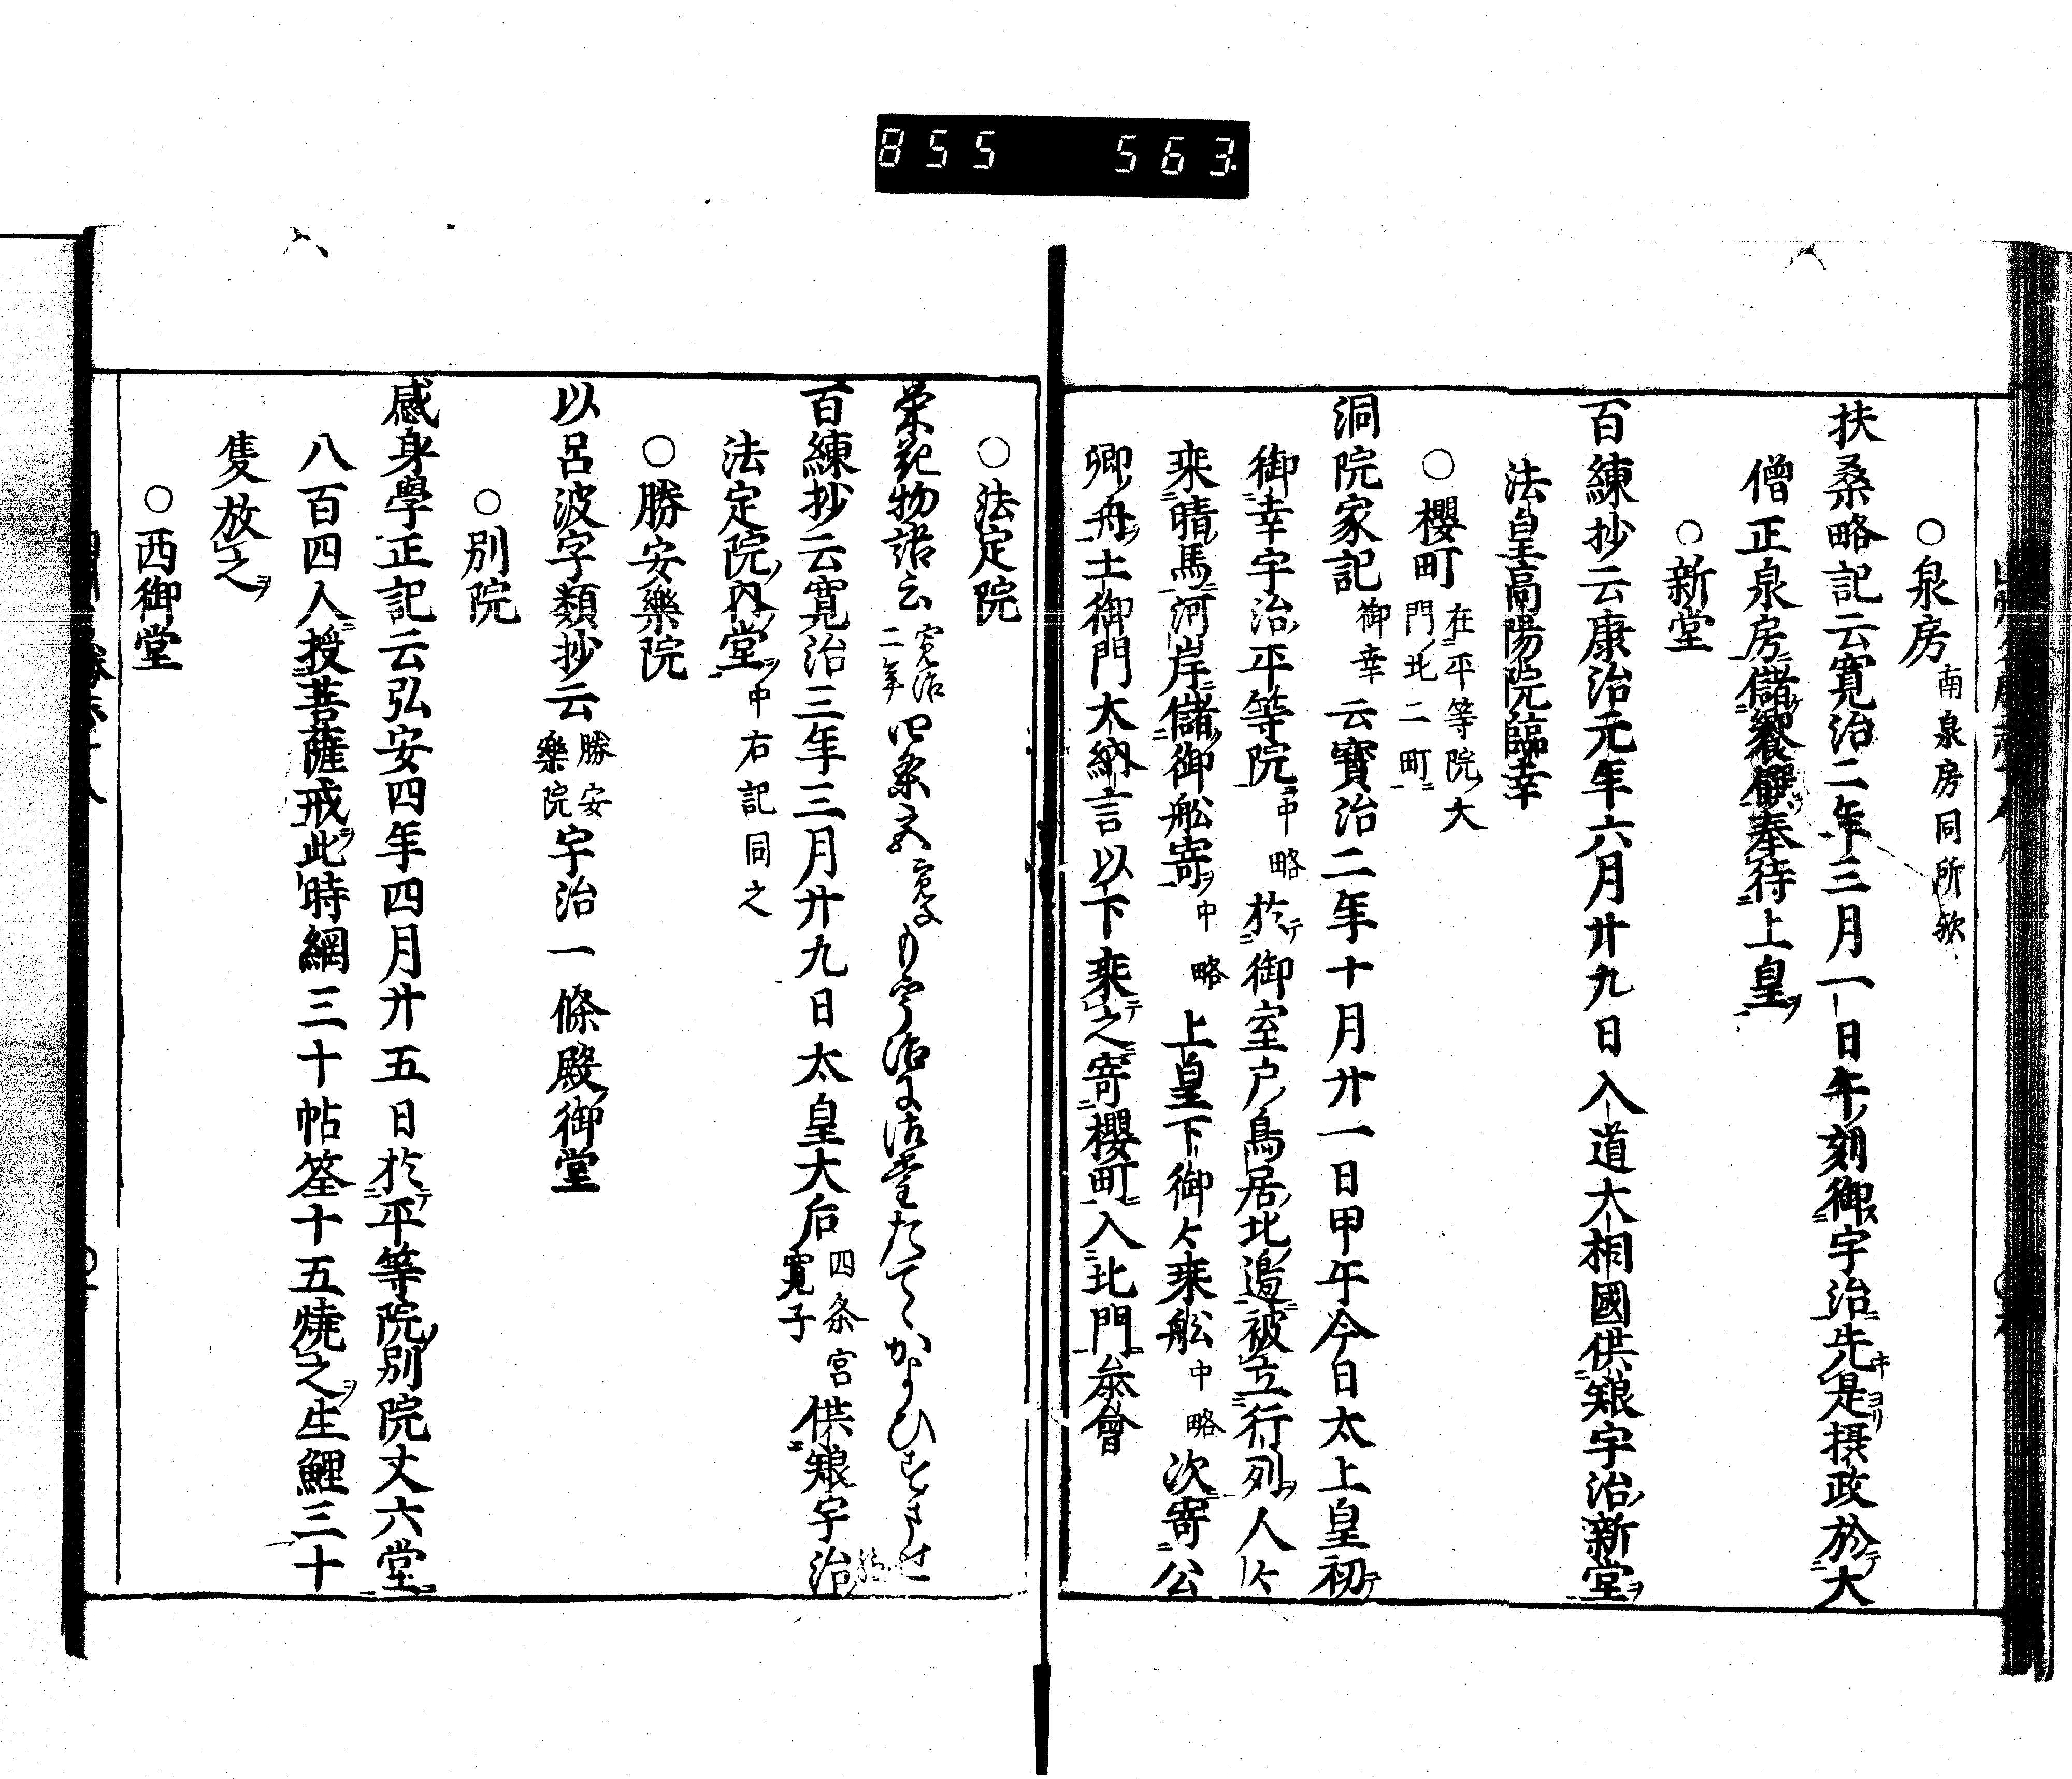 855 563
○泉房 南泉房同所歟
扶桑略記云寛治二年三月一日午刻御宇治先是摂政於大
僧正泉房儲饗饌奉待上皇
○新堂
百練抄云康治元年六月廿九日入道大相國供粮宇治新堂
法皇高陽院臨幸
○櫻町 在平等院大門北二町
洞院家記御幸云寳治二年十月廿一日甲午今日太上皇初
御幸宇治平等院中略於御室戸鳥居北邉被立行列人々
乘晴馬河岸儲御舩寄中略上皇下御々乘舩中略次寄公
卿舟土御門大納言以下乘之寄櫻町入北門叅會
○法定院
栄花物語云寛治二年四条宮寛子も宇治に御堂たてゝかよひすませ
百練抄云寛治三年三月廿九日太皇大后四条宮寛子供粮宇治
法定院内堂中右記同之
○勝安樂院
以呂波字類抄云勝安樂院宇治一條殿御堂
○別院
感身學正記云弘安四年四月廿五日於平等院別院丈六堂
八百四人授菩薩戒此時網三十帖筌十五燒之生鯉三十
隻放之
○西御堂